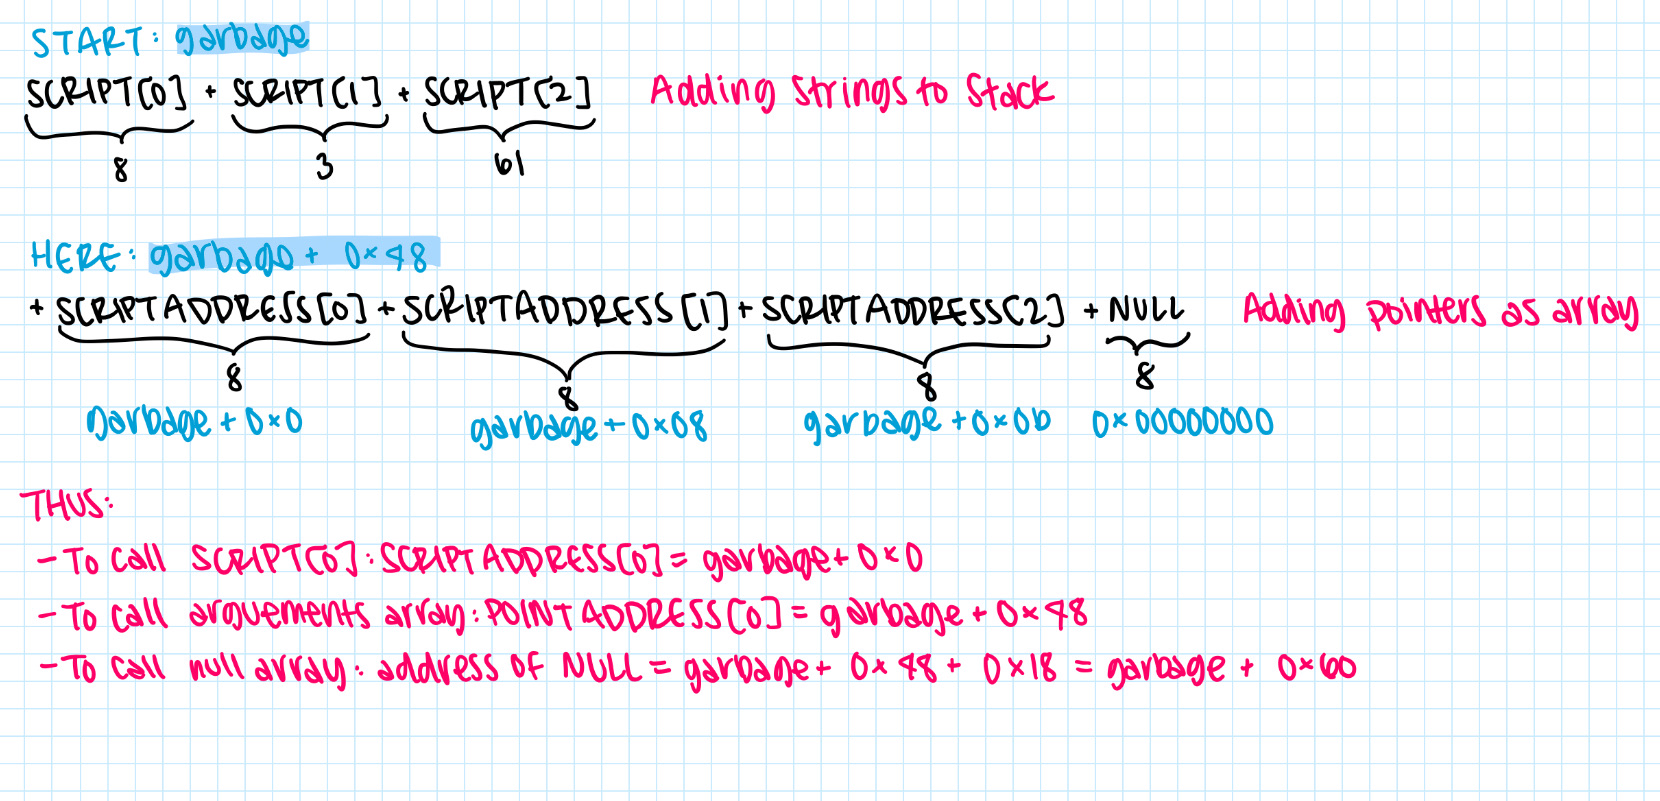 START: garbage
SCRIPT[0] + SCRIPT[1] + SCRIPT[2] Adding Strings to Stack
8 3 61
HERE: garbage + 0x48
+ SCRIPTADDRESS[0] + SCRIPTADDRESS[1] + SCRIPTADDRESS[2] + NULL Adding pointers as array
8 8 8 8
garbage + 0x0 garbage + 0x08 garbage + 0x0b 0x00000000
THUS:
- To call SCRIPT[0]: SCRIPTADDRESS[0] = garbage + 0x0
- To call arguements array: POINTADDRESS[0] = garbage + 0x48
- To call null array: address of NULL = garbage + 0x48 + 0x18 = garbage + 0x60